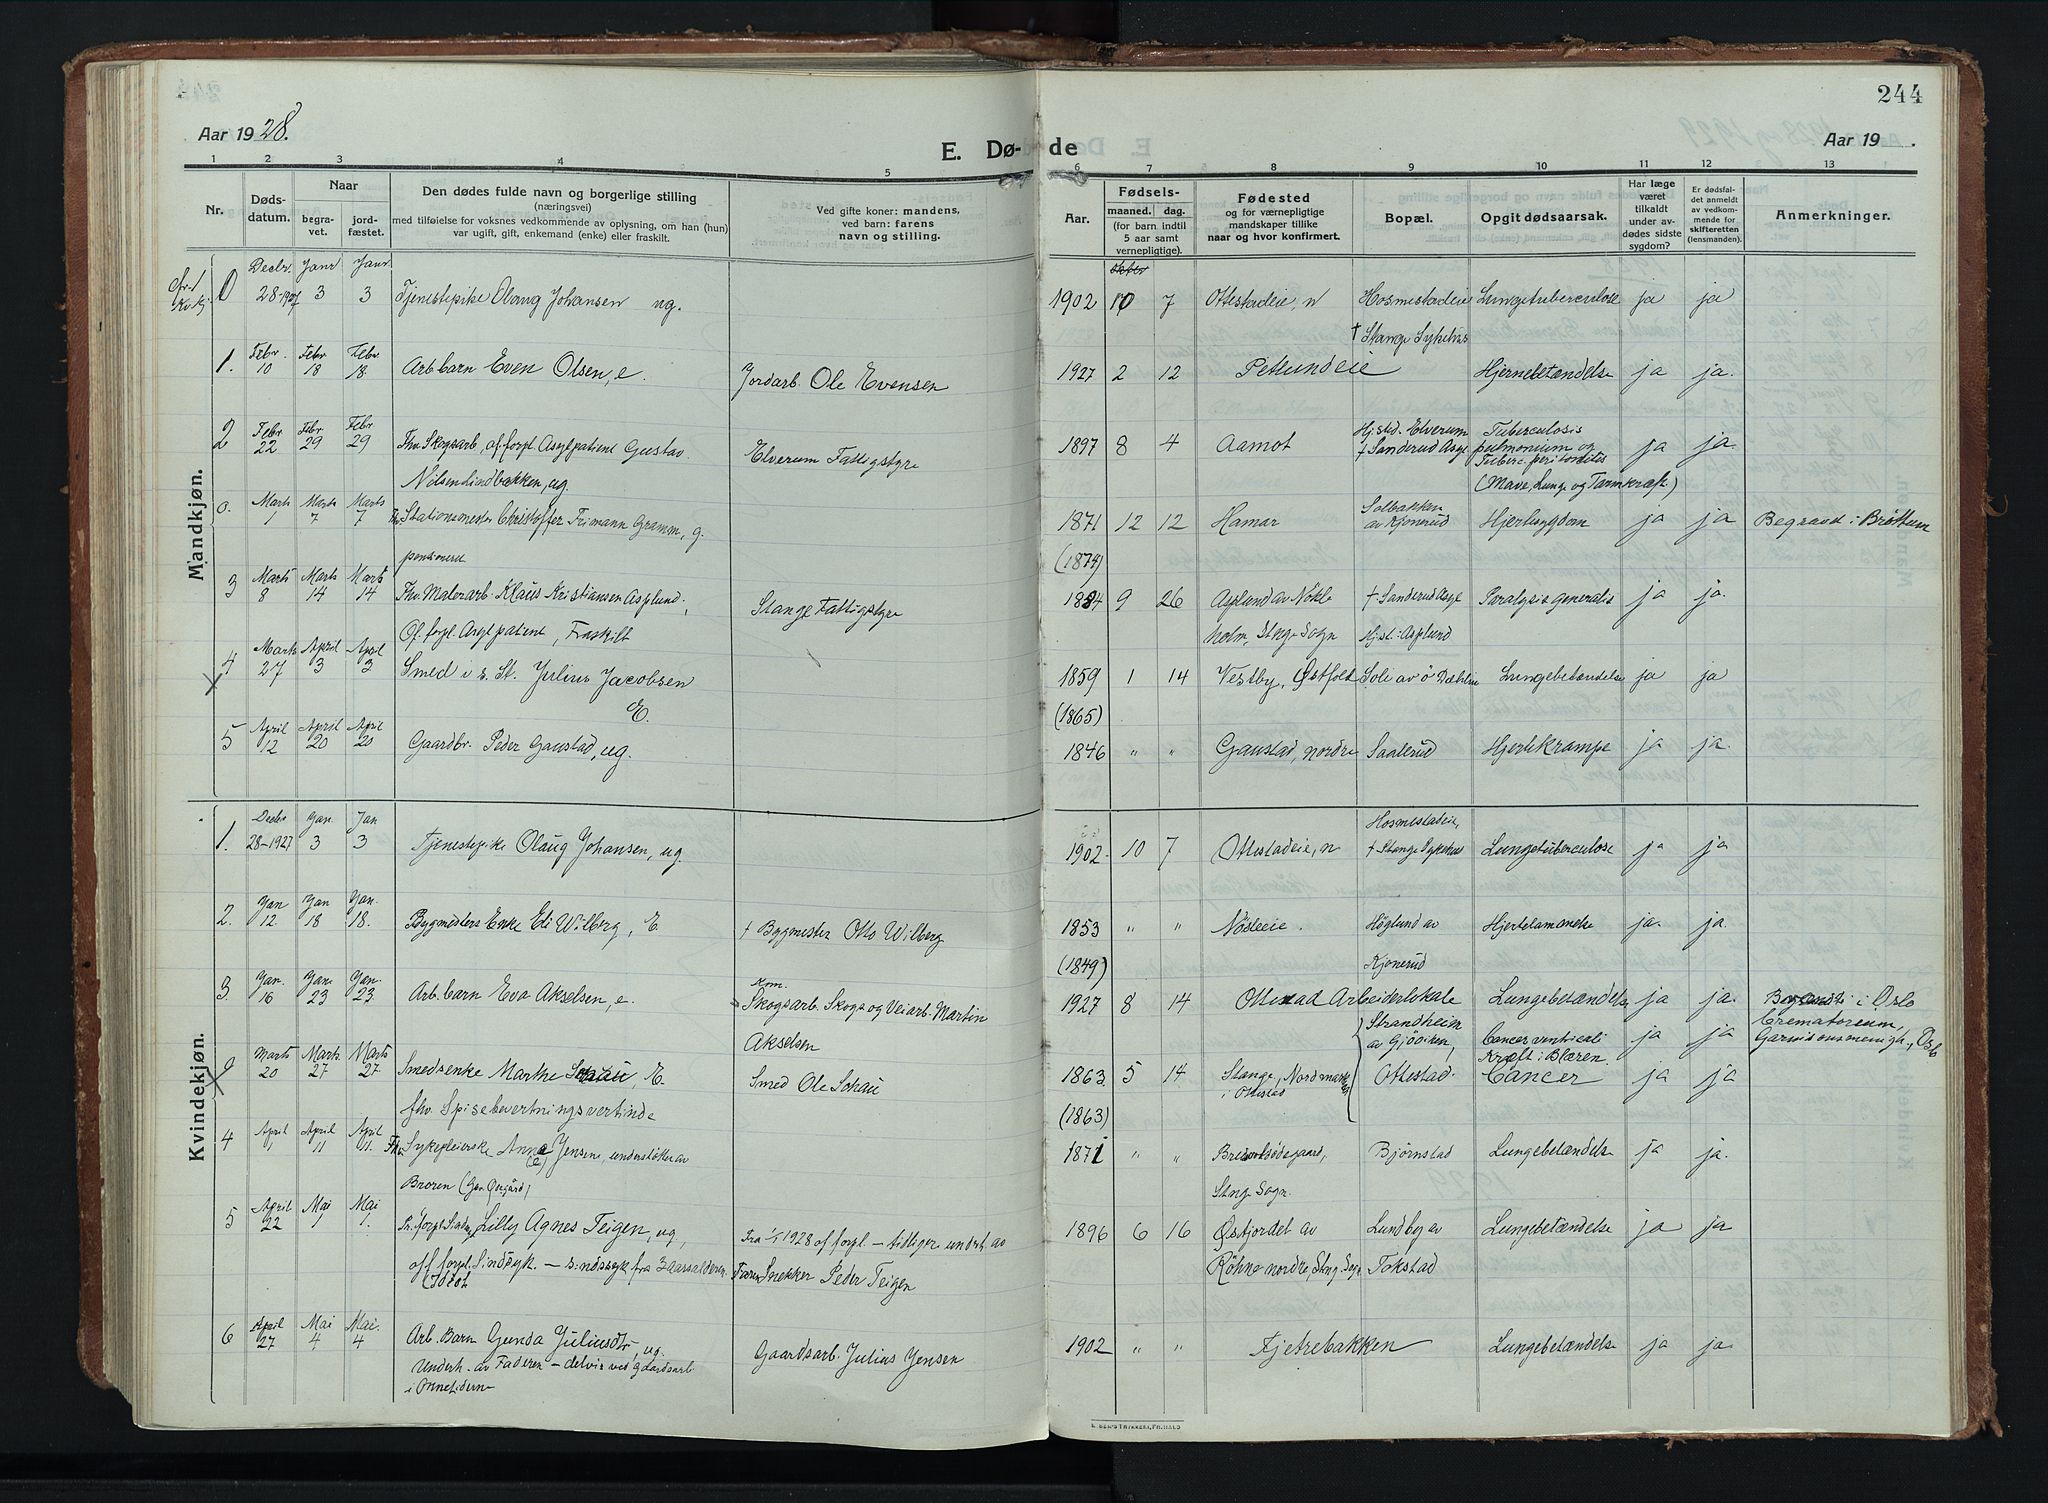 244
Aar 1928.
E. Dø-
de
Aar 19 .
1 2 3 4 5 6 7 8 9 10 11 12 13
Nr.
Døds-
datum.
Naar
begra-
vet.
jord-
fæstet.
Den dødes fulde navn og borgerlige stilling
(næringsvei)
med tilføielse for voksnes vedkommende av oplysning, om han (hun)
var ugift, gift, enkemand (enke) eller fraskilt.
Ved gifte koner: mandens,
ved barn: farens
navn og stilling.
Aar.
Fødsels-
maaned. dag.
(for barn indtil
5 aar samt
vernepligtige).
Fødested
og for værnepligtige
mandskaper tillike
naar og hvor konfirmert.
Bopæl.
Opgit dødsaarsak.
Har læge
været
tilkaldt
under av-
dødes sidste
sygdom?
Er dødsfal-
det anmeldt
av vedkom-
mende for
skifteretten
(lensmanden).
Anmerkninger.
Mandkjøn.
Decbr. Janr Janr
0 28-1927 3 3 Tjenestepike Olaug Johansen ug. 1902 10 7 Ottestadeie, n Hosmestadeie Lungetuberculose ja ja
† Stange Sykehus
Febr. Febr Febr
1. 10 18 18. Arb. barn Even Olsen, e. Jordarb. Ole Evensen 1927 2 12 Petlundeie Hjernebetændelse ja ja.
Febr Febr Febr
2 22 29 29 Fhv. Skogsarb. of. forpl. Asylpatient Gustav Elverum Fattigstyre 1897 8 4 Aamot Hjstd. Elverum † Sanderud Asyl Tuberculosis pulmonium og Tuberc. peritonitis ja ja.
Nilsen Lindbækken, ug. (Mave, Lunge og Tarmkræft)
Marts Marts Marts
0. 1 7 7 Fhv. Stationsmester Christoffer Frimann Gramm, g. 1871 12 12 Hamar Solbakken av Kjonerud Hjertesygdom ja ja Begravd i Brøttum
pensioneret (1874)
Marts Marts Marts
3 8 14 14 Fhv. Malerarb. Klaus Kristiansen Asplund, Stange Fattigstyre 1884 9 26 Asplund av Nökle- † Sanderud Asyl Paralysis generalis ja ja.
Of. forpl. Asylpatient, Fraskilt holm, Stnge Sogn Hjst: Asplund
Marts April April
4 27 3 3 Smed i s. St. Julius Jacobsen 1859 1 14 Vestby, Østfold Soli av ö Dæhlin Lungebetændelse ja ja
E. (1865)
April April April
5 12 20 20 Gaardbr. Peder Gaustad, ug. 1846 " " Gaustad, nordre Saalerud Hjertekrampe ja ja.
Kvindekjøn.
Decbr Jan. Jan Hosmestadeie,
1. 28-1927 3 3 Tjenestepike Olaug Johansen, ug. 1902. 10 7 Ottestadeie, n † Stange Sykehus Lungetuberculose ja ja
Jan Jan Jan.
2. 12. 18 18. Bygmesters Enke Edi Wilberg, E † Bygmester Otto Wilberg 1853 " " Nösteeie. Höglund av Hjertelammelse ja. ja.
(1849) Kjonerud
Jan. Jan. Jan. Kom.
3. 16 23 23 Arb. barn Eva Akselsen, e. Skogsarb. Skogs og Veiarb. Martin 1927 8 14 Ottestad Arbeiderlokale Lungebetændelse ja ja.
Akselsen
Marts Marts Marts Strandheim av Gjöviken, Cancer ventricali ja ja i Oslo Crematorium, Garnisonsmenigh., Oslo
Kræft i Blæren
0 20 27 27 Smedsenke Marthe Schau, E. Smed Ole Schau 1863 5 14 Stange, Nordmarken i Ottestad Ottestad. Cancer ja ja
fhv. Spisebevertningsvertinde (1863)
April April April
4 1 11 11. Fhv. Sykepleierske Anna (e) Jensen, understöttet av 1871 " " Björnstad Lungebetændelse ja ja.
Broren Stng Sogn.
April Mai Mai
5 22 1 1. Pr. forpl. Lilly Agnes Teigen, ug, Fra 1/1 1928 of forpl. – tidligere underh. av 1896 6 16 Östjordet av Lundby av Lungebetændelse ja ja
off. forpl. Sindssyk. – sindssyk fra 3 aarsalderen. Faren Snekker Peder Teigen Röhne nordre, Stng. Sogn Tokstad
(Idiot
April Mai Mai.
6 27 4 4 Arb. Barn Gunda Juliusdtr, ug. Gaardsarb. Julius Jensen 1902 " " Fjetrebakken Lungebetændelse ja ja
Underh. av Faderen – delvis ved gaardsarb.
i Onnetiderne